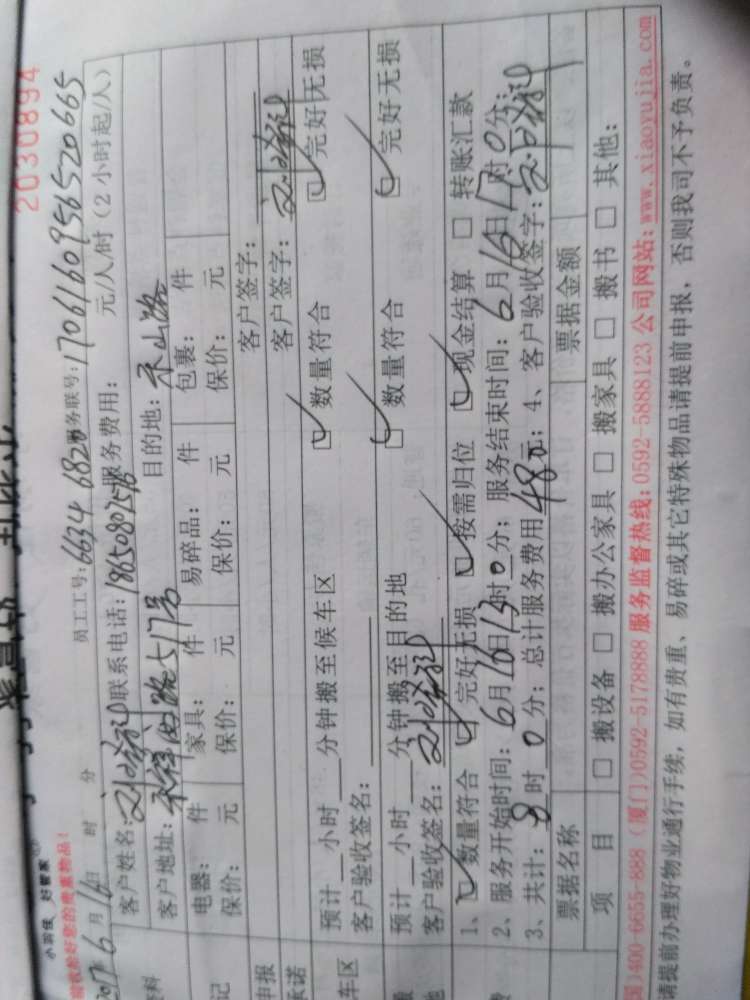 2030894
小羽佳 好管家
验收给好您的贵重物品!
2017年6月16日 时 分 员工工号: 6634 682 服务联号: 1706160956520665
客户姓名: 联系电话: 18650807578 服务费用: 元/人/时(2小时起/人)
客户地址: 路517号 目的地: 禾山路
电器: 件 家具: 件 易碎品: 件 包裹: 件
保价: 元 保价: 元 保价: 元 保价: 元
申报 客户签字:
承诺 客户签字:
预计 小时 分钟搬至候车区 ☑数量符合 ☑完好无损
客户验收签名:
预计 小时 分钟搬至目的地 ☑数量符合 ☑完好无损
客户验收签名:
1、☑数量符合 ☑完好无损 ☑按需归位 ☑现金结算 □转账汇款
2、服务开始时间: 6月16日13时0分; 服务结束时间: 6月16日17时0分;
3、共计: 8时0分; 总计服务费用48元; 4、客户验收签字:
票据名称 票据金额
项 目 □搬设备 □搬办公家具 □搬家具 □搬书 □其他:
国)400-6655-888 (厦门)0592-5178888 服务监督热线: 0592-5888123 公司网站: www.xiaoyujia.com
请提前办理好物业通行手续, 如有贵重、易碎或其它特殊物品请提前申报, 否则我司不予负责。